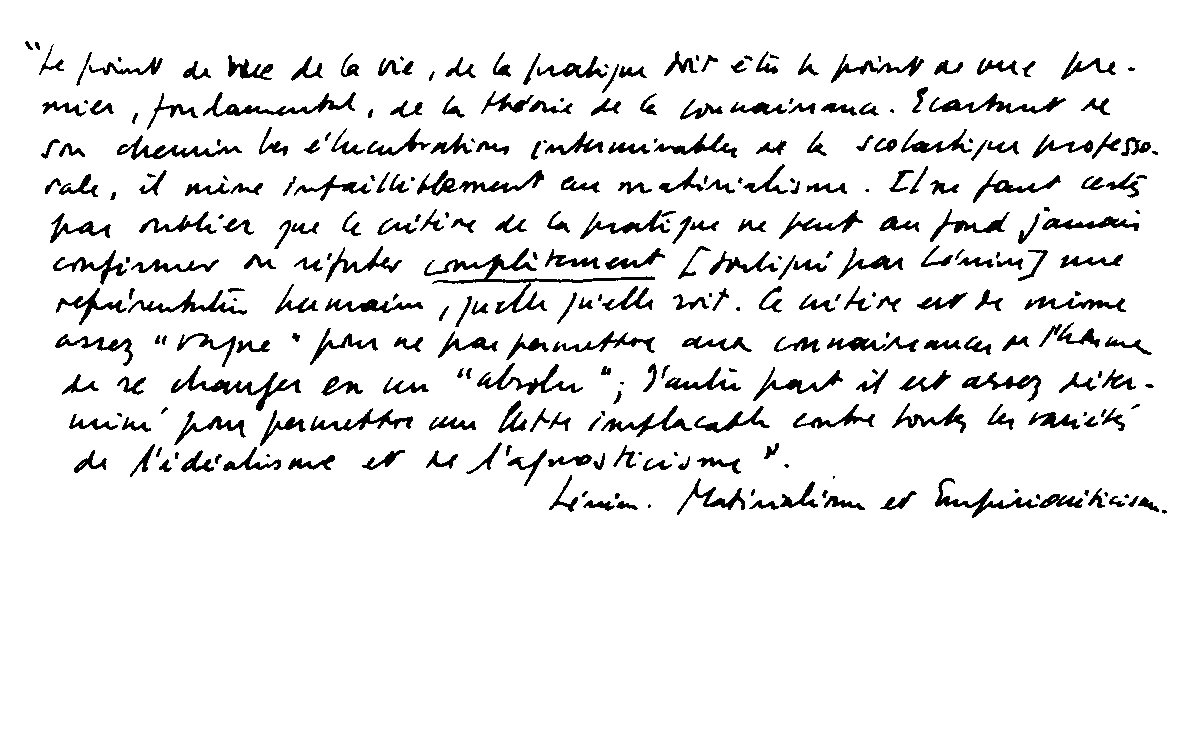 "Le point de vue de la vie, de la pratique doit être le point de vue pre-
mier, fondamental, de la théorie de la connaissance. Ecartant de
son chemin les élucubrations interminables de la scolastique professo-
rale, il mène infailliblement au matérialisme. Il ne faut certes
pas oublier que le critère de la pratique ne peut au fond jamais
confirmer ou réfuter complètement [souligné par Lénine] une
représentation humaine, quelle qu'elle soit. Ce critère est de même
assez "vague" pour ne pas permettre aux connaissances de l'homme
de se changer en un "absolu"; d'autre part il est assez déter-
miné pour permettre une lutte implacable contre toutes les variétés
de l'idéalisme et de l'agnosticisme".
Lénine. Matérialisme et Empiriocriticisme.